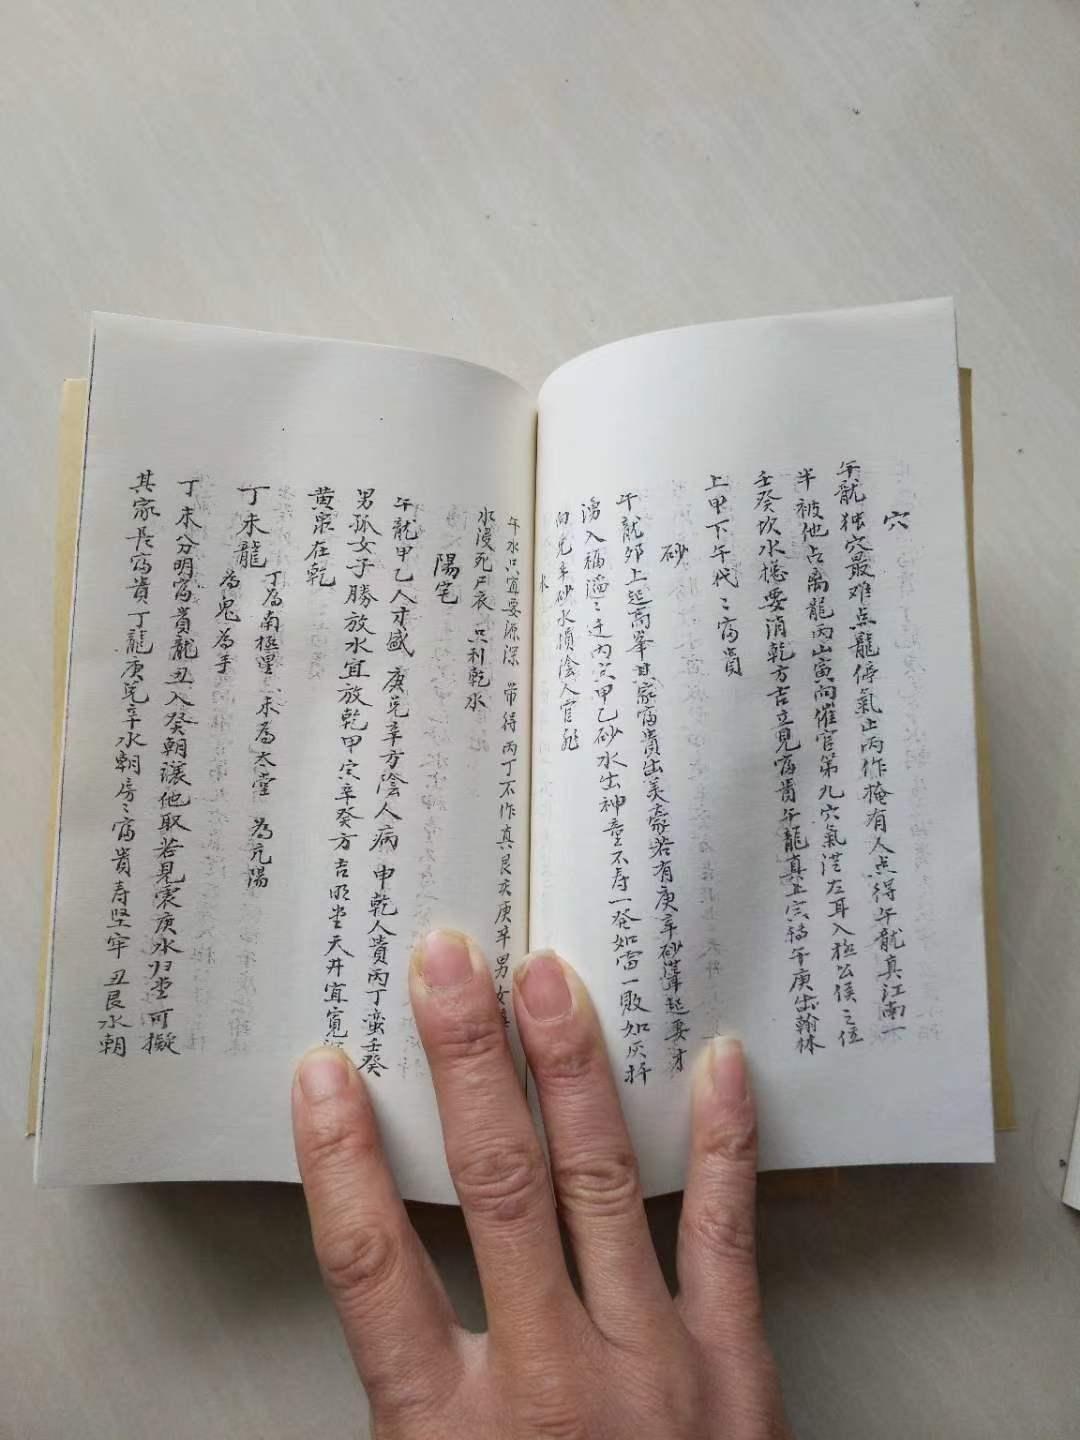 穴
午龍独穴最难点龍停氣止丙作掩有人点得午龍真江南一
半被他占離龍丙山寅向催官第九穴氣従左耳入極公侯之位
壬癸坎水揔要消乾方吉立見富貴午龍真上穴轉午庚出翰林
上甲下午代〻富貴
砂
午龍夘上起高峯其家富貴出美豪若有庚辛砂聳起妻才
湧入福滔〻迁内穴甲乙砂水出神童不寿一發如雷一敗如灰
向兑辛砂水順陰人官非
水
午水只宜要源深 带得丙丁不作真艮亥庚辛男女
水浸死尸衣 只利乾水
陽宅
午龍甲乙人才盛 庚兑辛方陰人病 申乾人貴丙丁蛮壬癸
男孤女子勝放水宜放乾甲穴辛癸方吉明堂天井宜寬
黄泉在乾
丁未龍
丁為南極星 未為太堂 為亢陽
為鬼為手
丁未分明富貴龍丑入癸朝讓他取若見震庚水归堂可擬
其家長富貴丁龍庚兑辛水朝房〻富貴寿坚牢 丑艮水朝